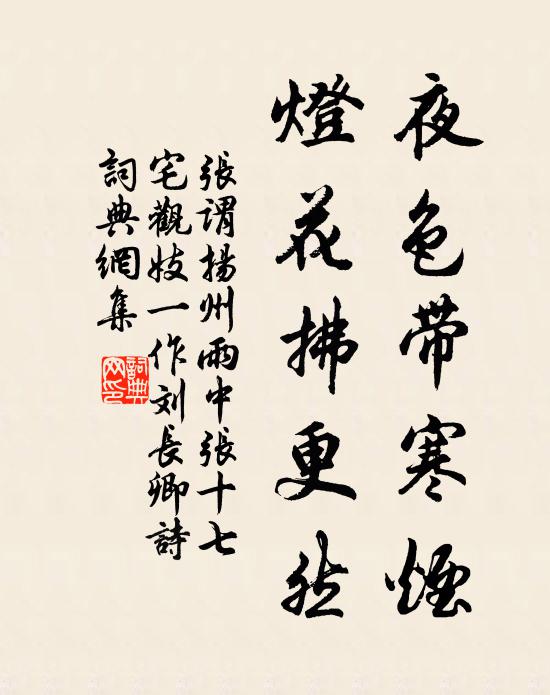 夜色帶寒煙
燈花拂更然
張謂揚州雨中張十七
宅觀妓一作刘長卿詩
詞典網集
詞典
网印